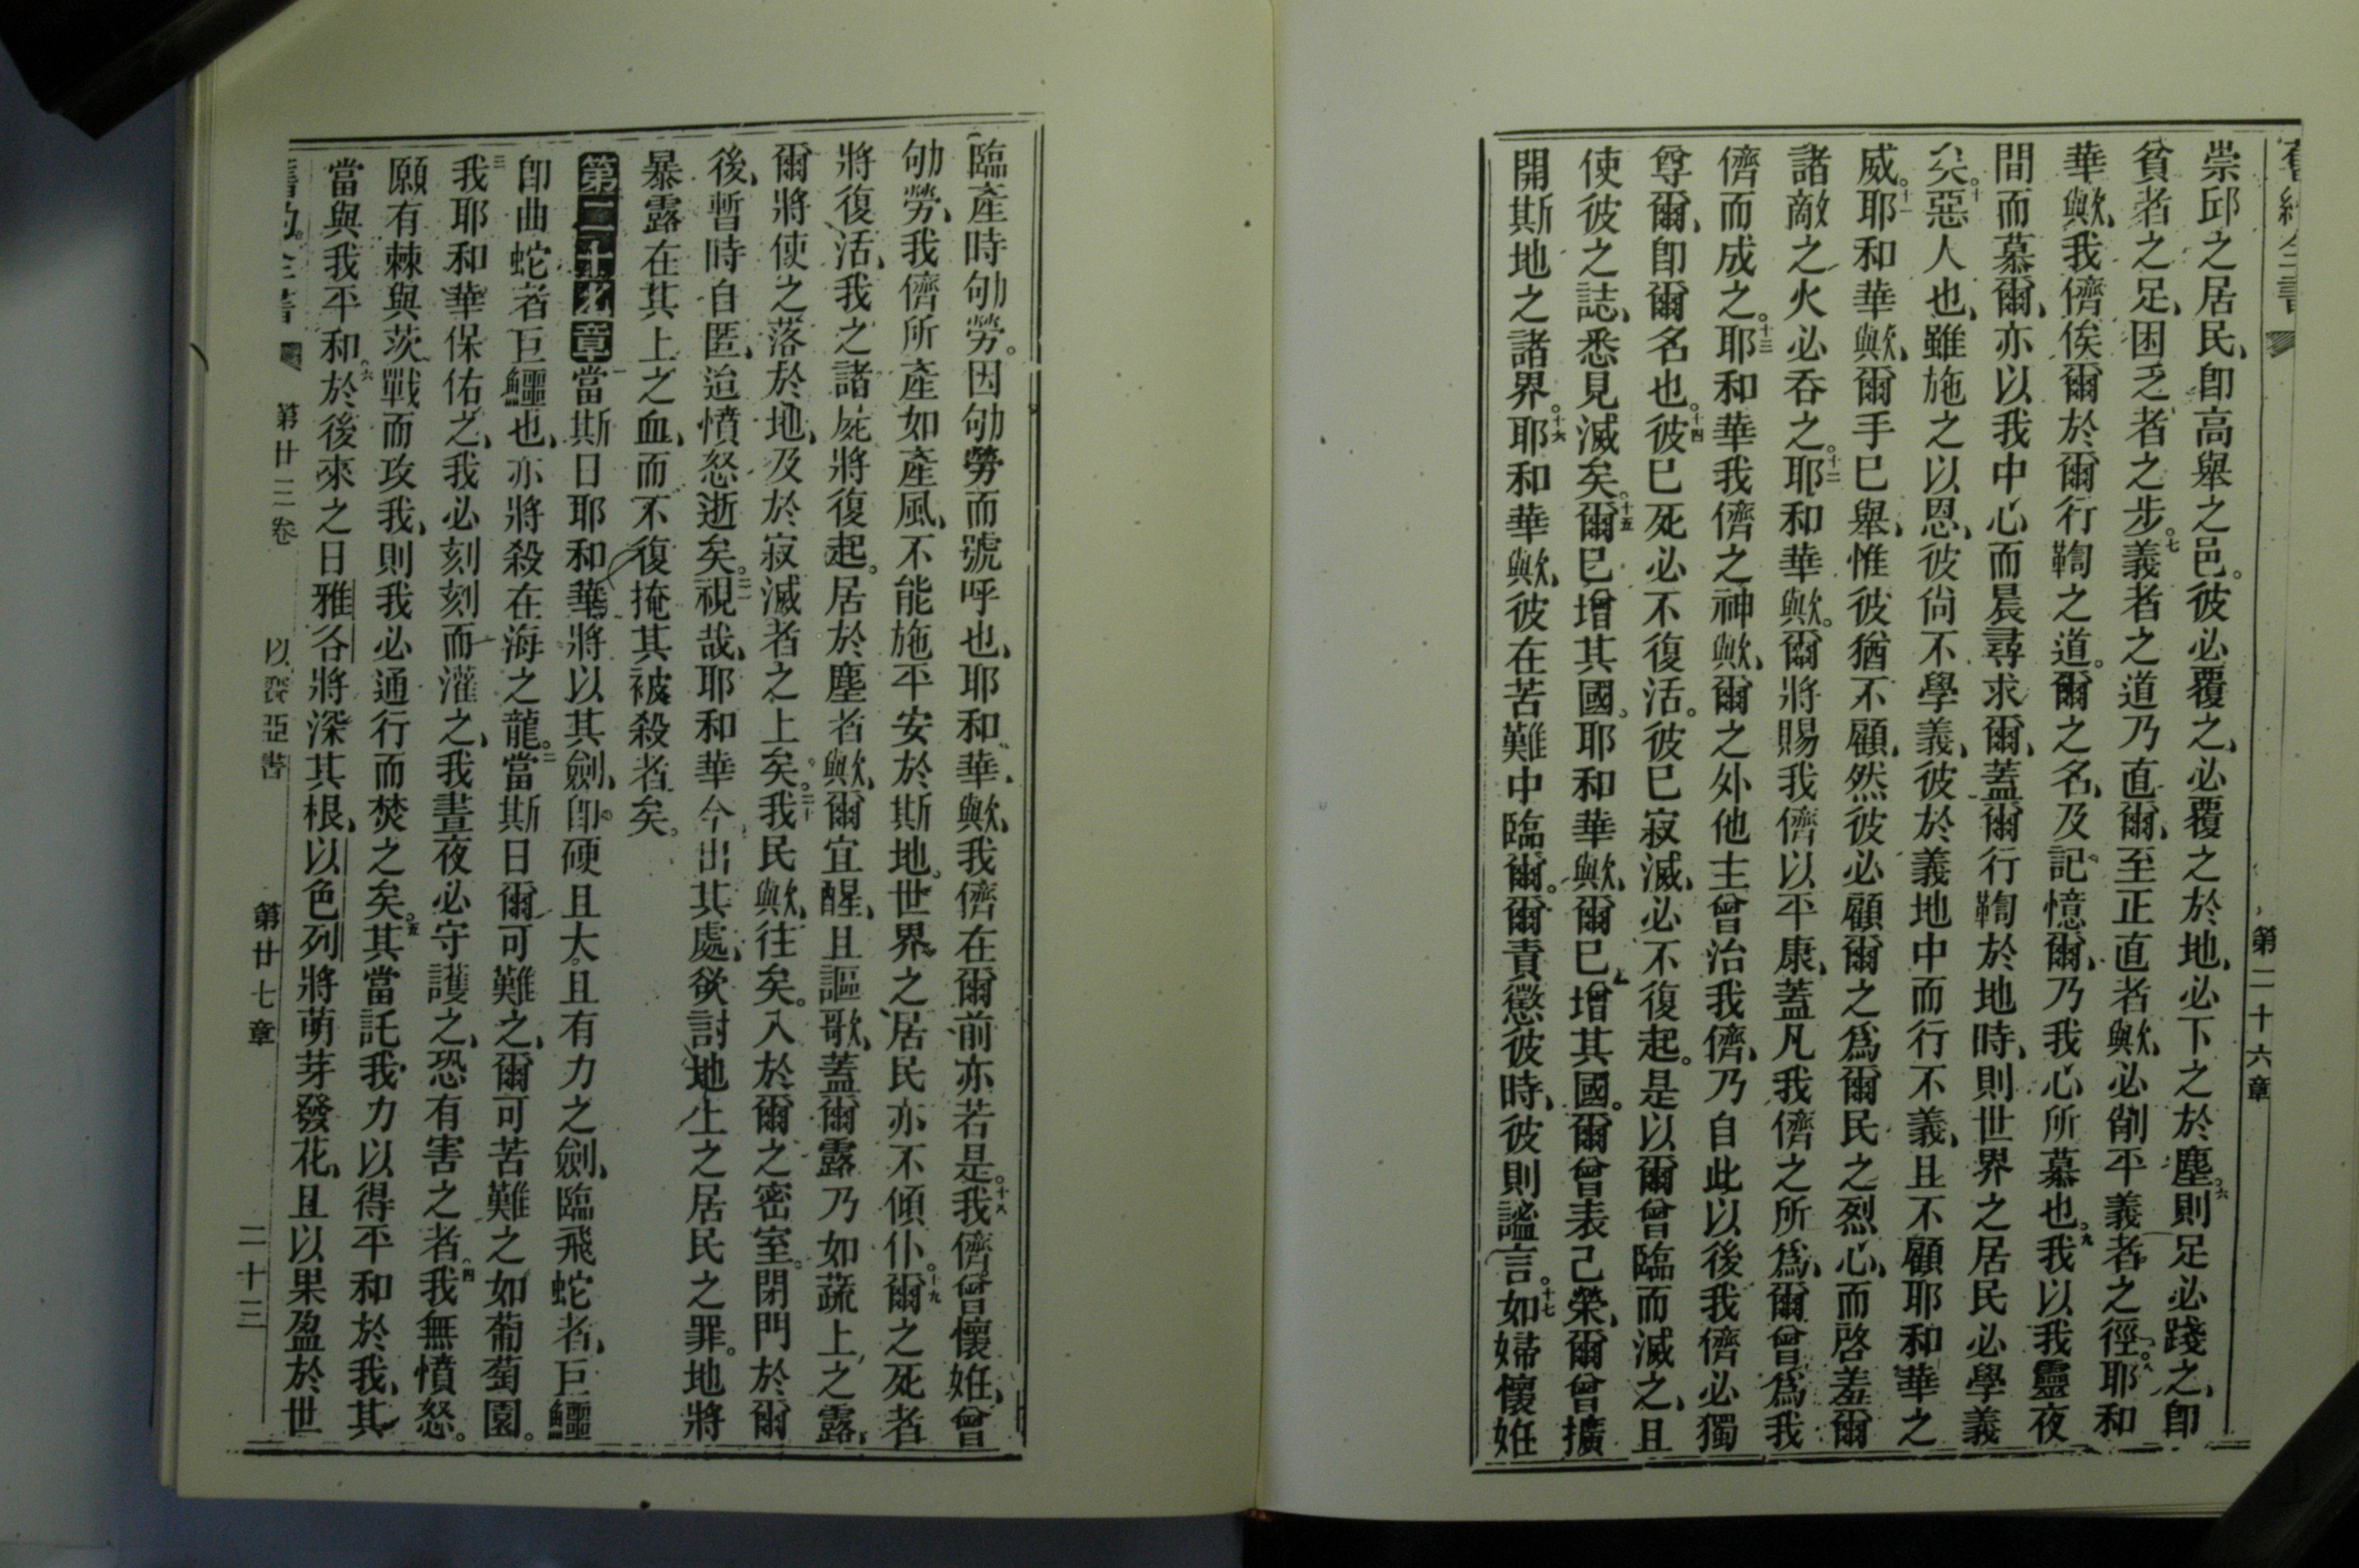 第二十六章
崇邱之居民、卽高舉之邑。彼必覆之、必覆之於地、必下之於塵。六則足必踐之、卽
貧者之足、困乏者之步。七義者之道乃直爾、至正直者歟、必削平義者之徑。八耶和
華歟、我儕俟爾於爾行鞫之道。爾之名、及記憶爾、乃我心所慕也。九我以我靈夜
間而慕爾、亦以我中心而晨尋求爾、蓋爾行鞫於地時、則世界之居民必學義
矣。十惡人也、雖施之以恩、彼尙不學義、彼於義地中而行不義、且不顧耶和華之
威。十一耶和華歟、爾手已舉、惟彼猶不顧、然彼必顧爾之爲爾民之烈心、而啓羞爾
諸敵之火必吞之。十二耶和華歟。爾將賜我儕以平康、蓋凡我儕之所爲、爾曾爲我
儕而成之。十三耶和華我儕之神歟、爾之外他主曾治我儕、乃自此以後我儕必獨
尊爾、卽爾名也。十四彼已死必不復活。彼已寂滅、必不復起。是以爾曾臨而滅之、且
使彼之誌、悉見滅矣。十五爾已增其國。耶和華歟、爾已增其國。爾曾表己榮、爾曾擴
開斯地之諸界。十六耶和華歟、彼在苦難中臨爾。爾責懲彼時、彼則謐言。十七如婦懷姙
臨產時劬勞。因劬勞而號呼也、耶和華歟、我儕在爾前亦若是。十八我儕曾懷姙、曾
劬勞、我儕所產如產風、不能施平安於斯地。世界之居民亦不傾仆。十九爾之死者
將復活、我之諸屍將復起。居於塵者歟、爾宜醒、且謳歌、蓋爾露乃如蔬上之露、
爾將使之落於地、及於寂滅者之上矣。二十我民歟、往矣。入於爾之密室。閉門於爾
後、暫時自匿、迨憤怒逝矣。二一視哉、耶和華今出其處、欲討地上之居民之罪。地將
暴露在其上之血、而不復掩其被殺者矣。
第二十七章一當斯日耶和華將以其劍、卽硬且大。且有力之劍、臨飛蛇者、巨鱷
卽曲蛇者巨鱷也、亦將殺在海之龍。二當斯日爾可難之、爾可苦難之如葡萄園。
三我耶和華保佑之、我必刻刻而灌之、我晝夜必守護之、恐有害之者。四我無憤怒。
願有棘與茨、戰而攻我、則我必通行而焚之矣。五其當託我力以得平和於我、其
當與我平和。六於後來之日雅各將深其根、以色列將萌芽發花、且以果盈於世
第廿三卷 以賽亞書 第廿七章 二十三